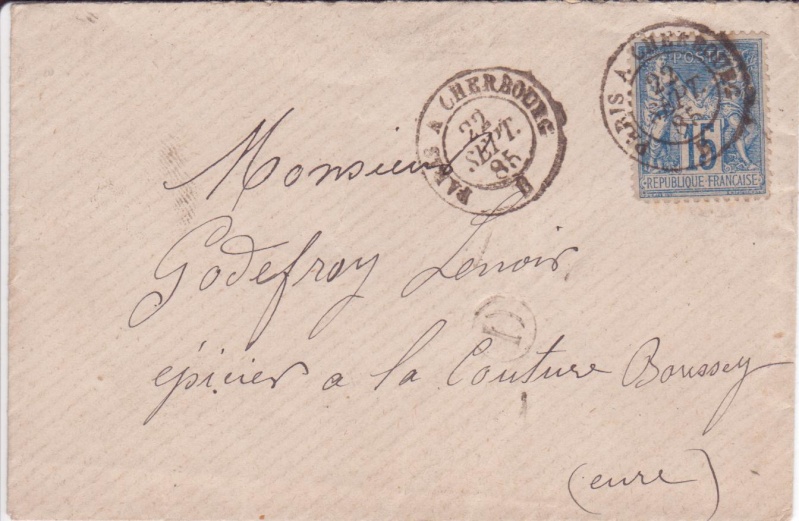 PARIS A CHERBOURG
22
SEPT.
85
PARIS A CHERBOURG
22
SEPT.
85
POSTES
15
REPUBLIQUE FRANCAISE
Monsieur
Godefroy Lenoir
D
épicier a la Couture Boussey
(eure)